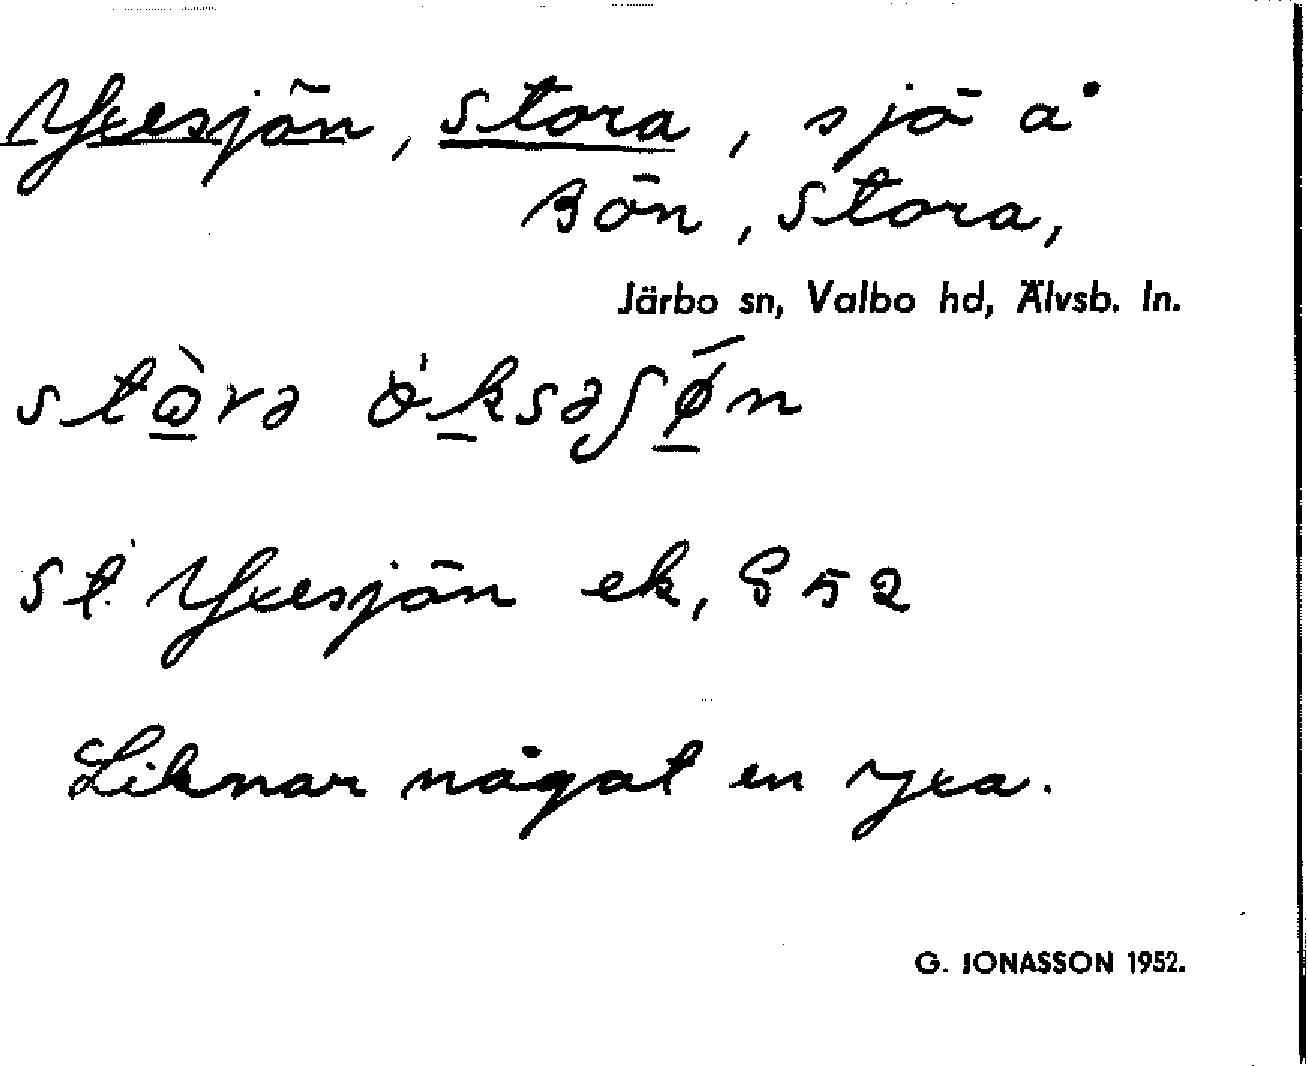 Yxesjön, Stora, sjö å
Bön, Stora,
Järbo sn, Valbo hd, Älvsb. ln.
St. Yxesjön ek, 852
Liknar något en yxa.
G. JONASSON 1952.